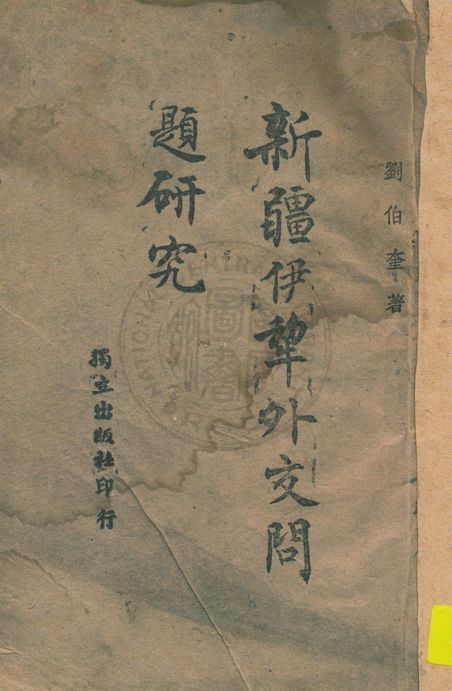 劉伯奎著
新疆伊犂外交問
題研究
獨立出版社印行